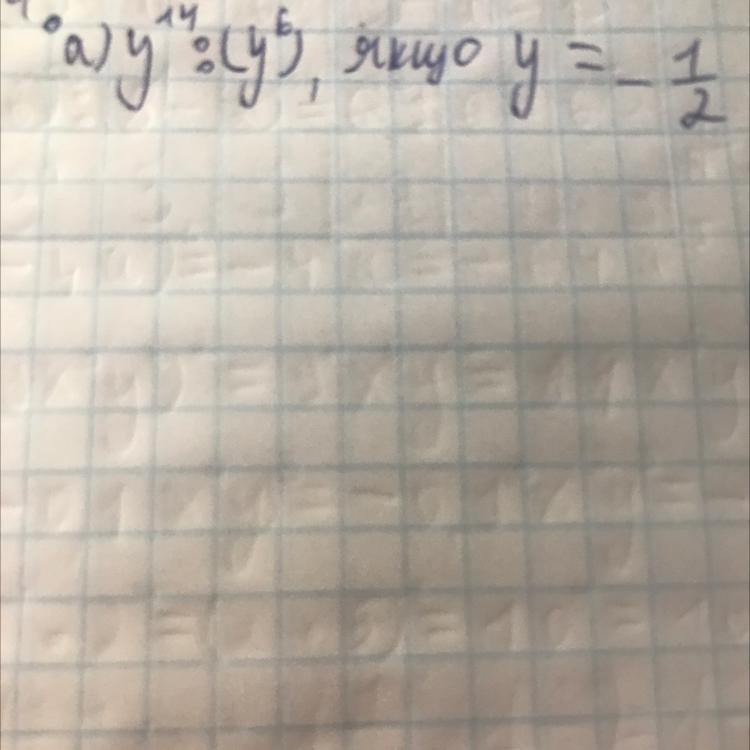 а) y¹⁴ : (y⁶), якщо y = - 1/2